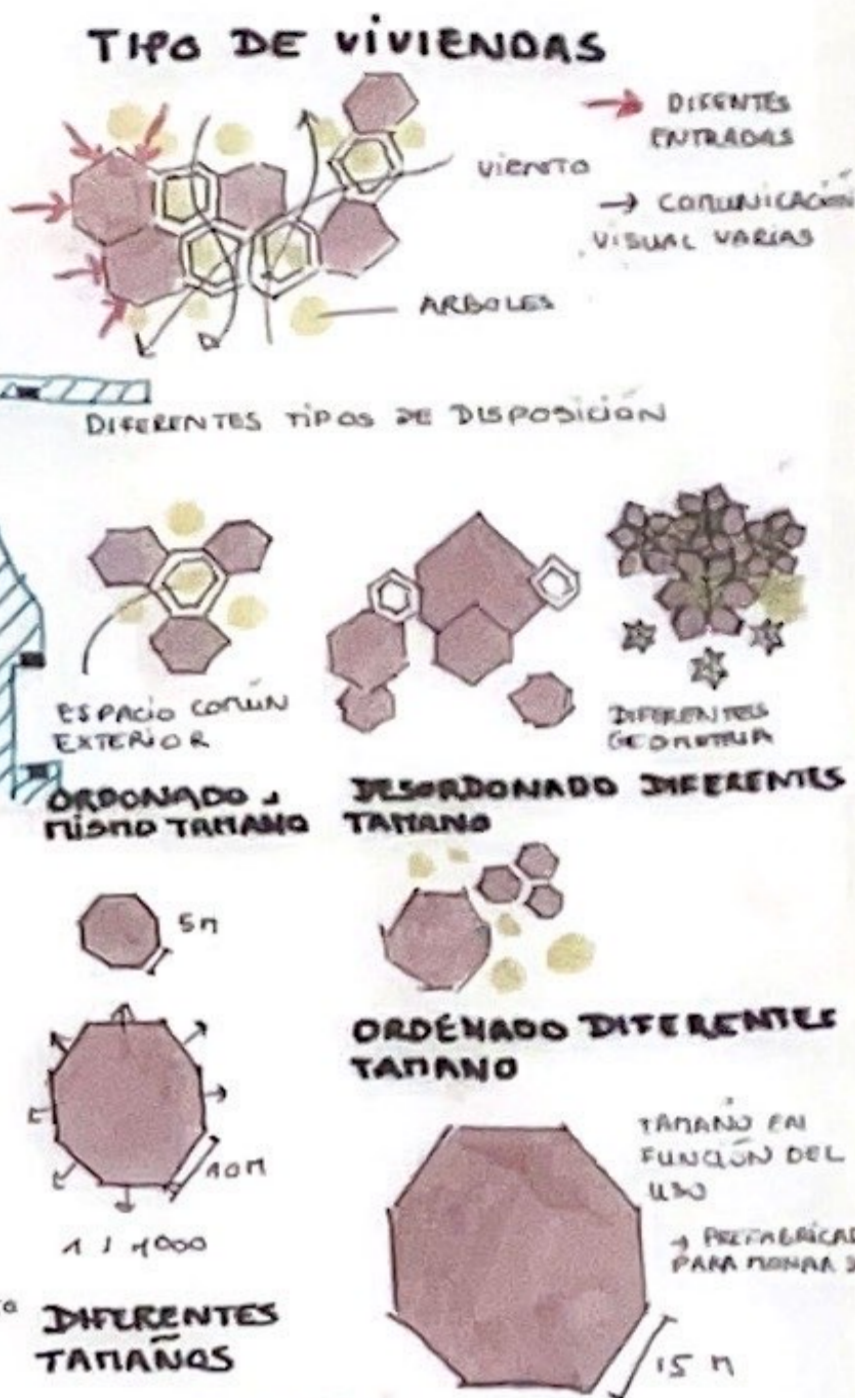 TIPO DE VIVIENDAS
→ DIFENTES
ENTRADAS
VIENTO
→ COMUNICACIÓN
VISUAL VARIAS
ARBOLES
DIFERENTES TIPOS DE DISPOSICIÓN
ESPACIO COMÚN
EXTERIOR
DIFERENTES
GEOMETRIA
ORDONADO
MISMO TAMANO
DESORDONADO DIFERENTES
TAMANO
5M
ORDENADO DIFERENTES
TAMANO
10M
1 / 1000
DIFERENTES
TAMAÑOS
TAMAÑO EN
FUNCIÓN DEL
USO
→ PREFABRICAD
PARA
15 M